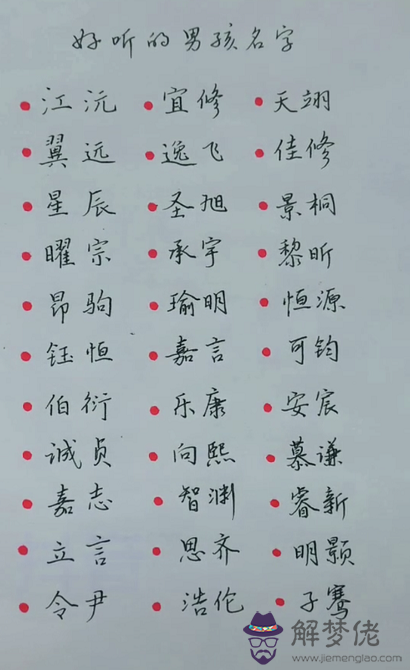 好听的男孩名字
江沅 宜修 天翊
翼远 逸飞 佳修
星辰 圣旭 景桐
曜宗 承宇 黎昕
昂驹 瑜明 恒源
钰恒 嘉言 可钧
伯衍 乐康 安宸
诚贞 向熙 慕谦
嘉志 智渊 睿新
立言 思齐 明颢
令尹 浩伦 子骞
解梦佬
www.jiemenglao.com